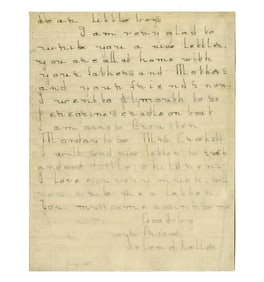 dear little boys
I am very glad to
write you a nice letter.
you are all at home with
your fathers and Mothers
and your friends now
I went to plymouth to see
cradle on boat
I am
Monday to see Mrs.
I will send nice letter to
and little children
I love you very much. will
you write me a letter.
You must come again to see me
Good-by
your friend
Helen a Keller